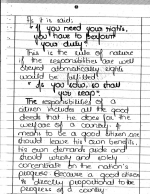 As it is said:
"If you need your rights,
you have to perform
your duty"
This is the rule of nature
if the responsibilities are well
obeyed automatically rights
would be fulfilled
"As you sow, so shall
you reap"
The responsibility of a
citizen includes all the good
deeds that he does for the
welfare of a country. It
means to be a good citizen one
should leave his own benefits,
his own demands aside and
should wholly and solely
concentrate for the nation's
progress. Because a good citizen
is directly proportional to the
progress of a country